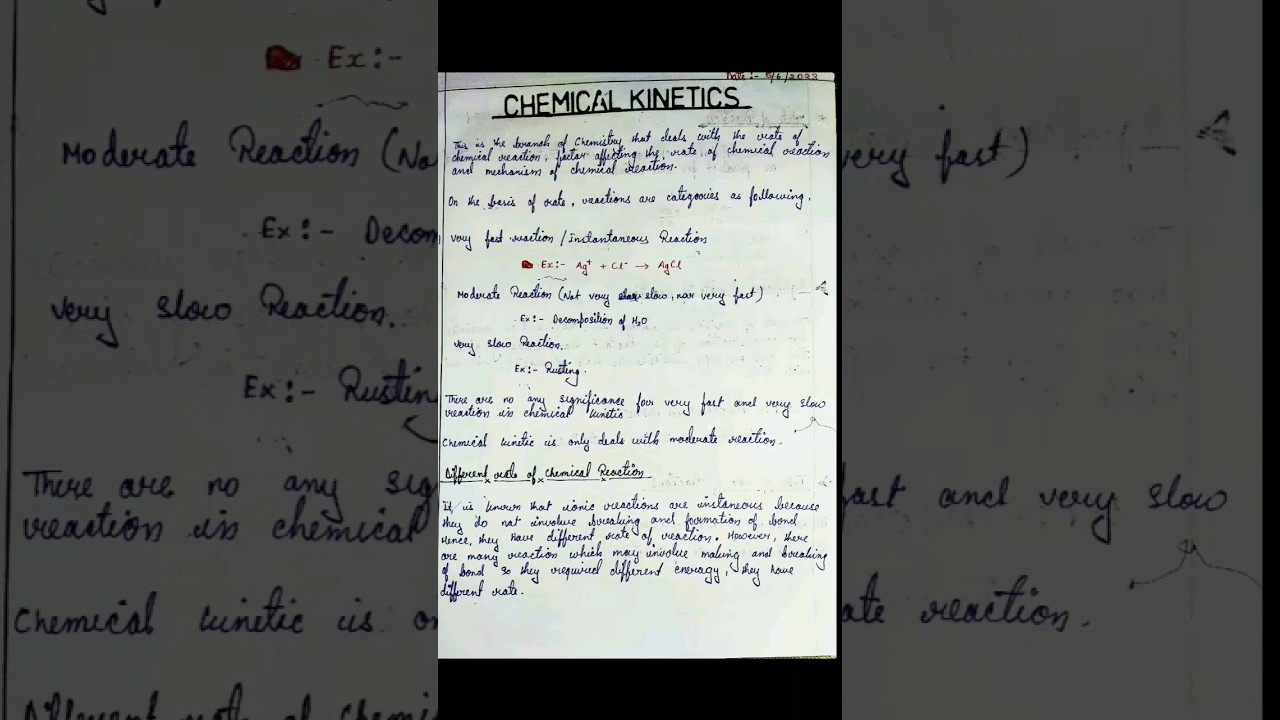 Date :- 5/6/2023
CHEMICAL KINETICS
This is the branch of Chemistry that deals with the rate of
chemical reaction, factor affecting the rate of chemical reaction
and mechanism of chemical reaction.
On the basis of rate, reactions are categories as following.
very fast reaction / instantaneous Reaction
Ex:- Ag⁺ + Cl⁻ → AgCl
Moderate Reaction (Not very slow, nor very fast)
Ex:- Decomposition of H₂O
very slow Reaction.
Ex:- Rusting.
There are no any significance for very fast and very slow
reaction in chemical kinetic
Chemical kinetic is only deals with moderate reaction.
Different rate of Chemical Reaction
It is known that ionic reactions are instaneous because
they do not involve breaking and formation of bond
Hence, they have different rate of reaction. However, there
are many reaction which may involve making and breaking
of bond so they required different eneragy, they have
different rate.
Ex:-
Moderate Reaction (No
very fast)
Ex:- Decom
very slow Reaction.
Ex:- Rustin
There are no any sig
fast and very slow
reaction in chemical
Chemical kinetic is o
ate reaction.
Different rate of Chemi